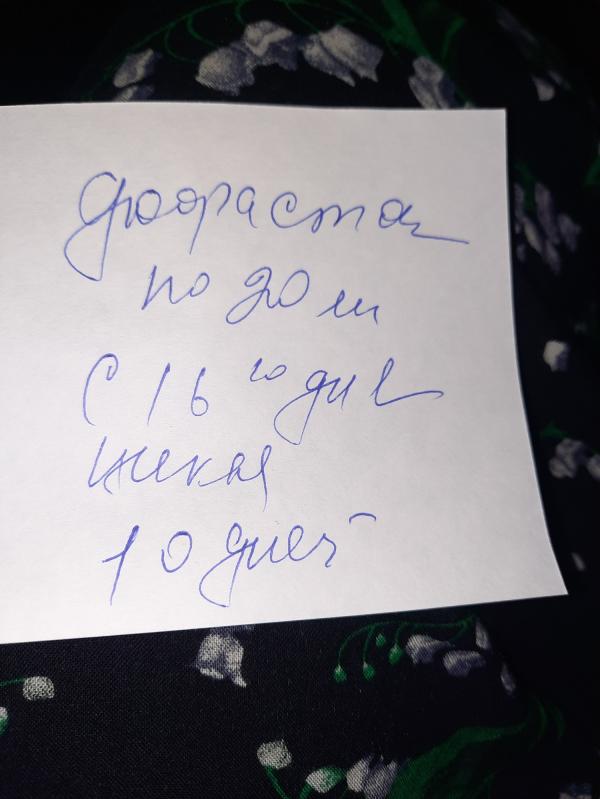 дюфастон
по 20 м
с 16 го дня
цикла
10 дней